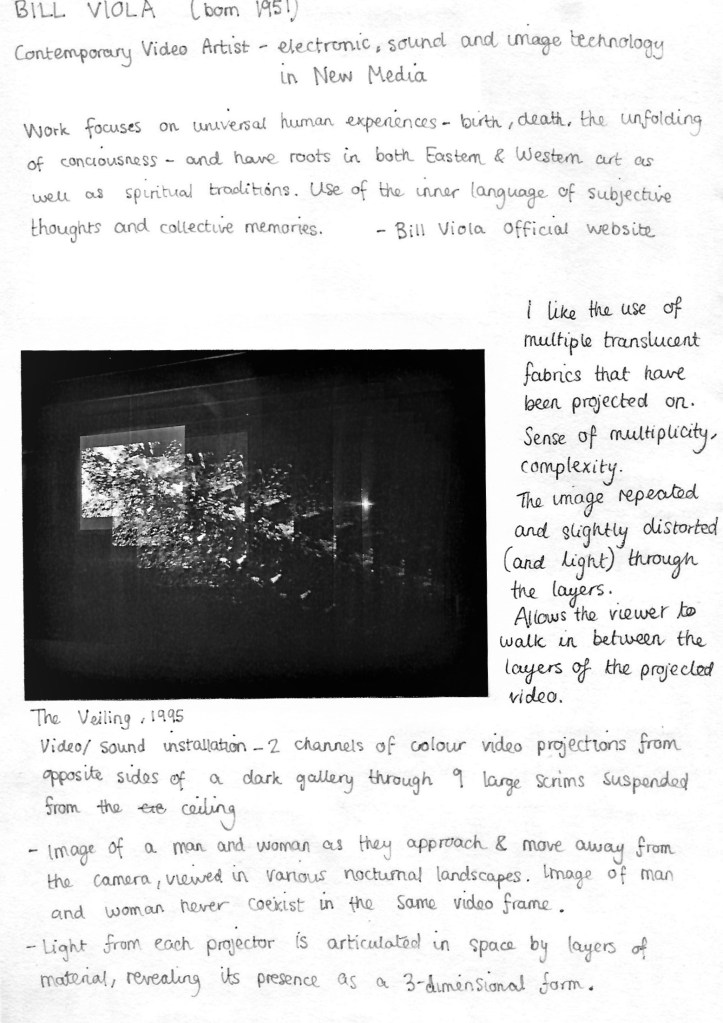 BILL VIOLA (born 1951)
Contemporary Video Artist - electronic, sound and image technology
in New Media
Work focuses on universal human experiences - birth, death, the unfolding
of conciousness - and have roots in both Eastern & Western art as
well as spiritual traditions. Use of the inner language of subjective
thoughts and collective memories. - Bill Viola Official website
I like the use of
multiple translucent
fabrics that have
been projected on.
Sense of multiplicity,
complexity.
The image repeated
and slightly distorted
(and light) through
the layers.
Allows the viewer to
walk in between the
layers of the projected
video.
The Veiling, 1995
Video/ Sound installation - 2 channels of colour video projections from
opposite sides of a dark gallery through 9 large scrims suspended
from the ceiling
- Image of a man and woman as they approach & move away from
the camera, viewed in various nocturnal landscapes. Image of man
and woman never coexist in the same video frame.
- Light from each projector is articulated in space by layers of
material, revealing its presence as a 3-dimensional form.